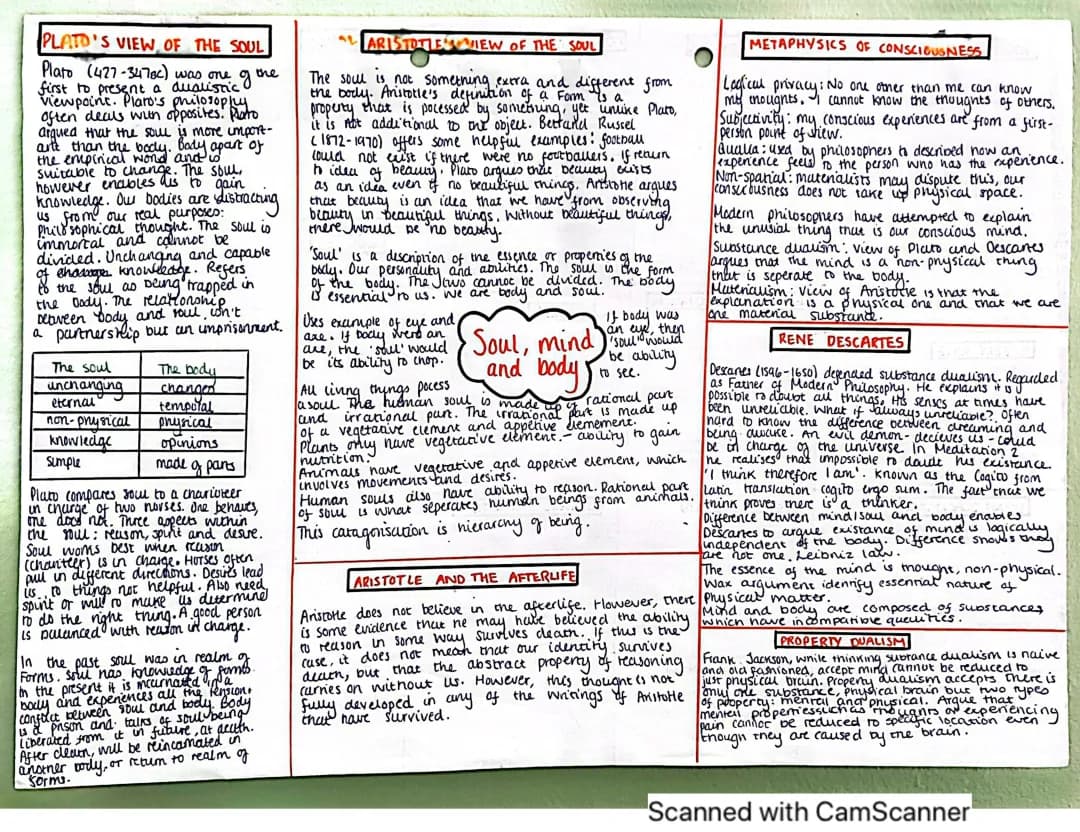 PLATO'S VIEW OF THE SOUL
Plato (427-347BC) was one of the
first to present a dualistic
viewpoint. Plato's philosophy
often deals with opposites. Plato
argued that the soul is more import-
ant than the body. Body apart of
the empirical world and is
suitable to change. The soul,
however enables us to gain
knowledge. Our bodies are distracting
us from our real purpose:
philosophical thought. The soul is
immortal and cannot be
divided. Unchanging and capable
of knowledge. Refers
to the soul as being trapped in
the body. The relationship
between body and soul isn't
a partnership but an imprisonment.
The soul | The body
unchanging | changed
eternal | temporal
non-physical | physical
knowledge | opinions
simple | made of parts
Plato compares soul to a charioteer
in charge of two horses. One behaves,
one does not. Three aspects within
the soul: reason, spirit and desire.
Soul works best when reason
(charitteer) is in charge. Horses often
pull in different directions. Desires lead
us to things not helpful. Also need
spirit or will to make us determined
to do the right thing. A good person
is balanced with reason in charge.
In the past soul was in realm of
Forms. Soul has knowledge of forms.
In the present it is incarnated in a
body and experiences all the tension,
conflict between soul and body. Body
is a prison and talks of soul being
liberated from it in future, at death.
After death, will be reincarnated in
another body, or return to realm of
forms.
ARISTOTLE'S VIEW OF THE SOUL
The soul is not something extra and different from
the body. Aristotle's definition of a Form is a
property that is pocessed by something, yet unlike Plato,
it is not additional to the object. Bertrand Russel
(1872-1970) offers some helpful examples: football
could not exist if there were no footballers. If return
to idea of beauty. Plato argues that beauty exists
as an idea even if no beautiful things. Aristotle argues
that beauty is an idea that we have from observing
beauty in beautiful things. Without beautiful things,
there would be no beauty.
'Soul' is a description of the essence or properties of the
body. Our personality and abilities. The soul is the form
of the body. The two cannot be divided. The body
is essential to us. We are body and soul.
Uses example of eye and
axe. If body were an
axe, the 'soul' would
be its ability to chop.
Soul, mind
and body
If body was
an eye, then
'soul' would
be ability
to see.
All living things pocess
a soul. The human soul is made up of rational part
and irrational part. The irrational part is made up
of a vegetative element and appetive elemement.
Plants only have vegetative element - ability to gain
nutrition.
Animals have vegetative and appetive element, which
involves movements and desires.
Human souls also have ability to reason. Rational part
of soul is what seperates human beings from animals.
This catagorisation is hierarchy of being.
ARISTOTLE AND THE AFTERLIFE
Aristotle does not believe in the afterlife. However, there
is some evidence that he may have believed the ability
to reason in some way survives death. If this is the
case, it does not mean that our identity survives
death, but that the abstract property of reasoning
carries on without us. However, this thought is not
fully developed in any of the writings of Aristotle
that have survived.
METAPHYSICS OF CONSCIOUSNESS
Logical privacy: No one other than me can know
my thoughts. I cannot know the thoughts of others.
Subjectivity: my conscious experiences are from a first-
person point of view.
Qualia: used by philosophers to described how an
experience feels to the person who has the experience.
Non-spatial: materialists may dispute this, our
consciousness does not take up physical space.
Modern philosophers have attempted to explain
the unusual thing that is our conscious mind.
Substance dualism: View of Plato and Descartes
argues that the mind is a non-physical thing
that is seperate to the body.
Materialism: View of Aristotle is that the
explanation is a physical one and that we are
one material substance.
RENE DESCARTES
Descartes (1596-1650) defended substance dualism. Regarded
as Father of Modern Philosophy. He explains it is
possible to doubt all things. His senses at times have
been unreliable. What if always unreliable? Often
hard to know the difference between dreaming and
being awake. An evil demon - decieves us - could
be in charge of the universe. In Meditation 2
he realises that impossible to doubt his existance.
'I think therefore I am'. Known as the Cogito from
Latin translation: cogito ergo sum. The fact that we
think proves there is a thinker.
Difference between mind/soul and body enables
Descartes to argue existance of mind is logically
independent of the body. Difference shows they
are not one. Leibniz law.
The essence of the mind is thought, non-physical.
Wax argument identify essential nature of
physical matter.
Mind and body are composed of substances
which have incompatible qualities.
PROPERTY DUALISM
Frank Jackson, while thinking substance dualism is naive
and old fashioned, accept mind cannot be reduced to
just physical brain. Property dualism accepts there is
only one substance, physical brain but two types
of property: mental and physical. Argue that
mental properties such as thoughts or experiencing
pain cannot be reduced to specific location even
though they are caused by the brain.
Scanned with CamScanner